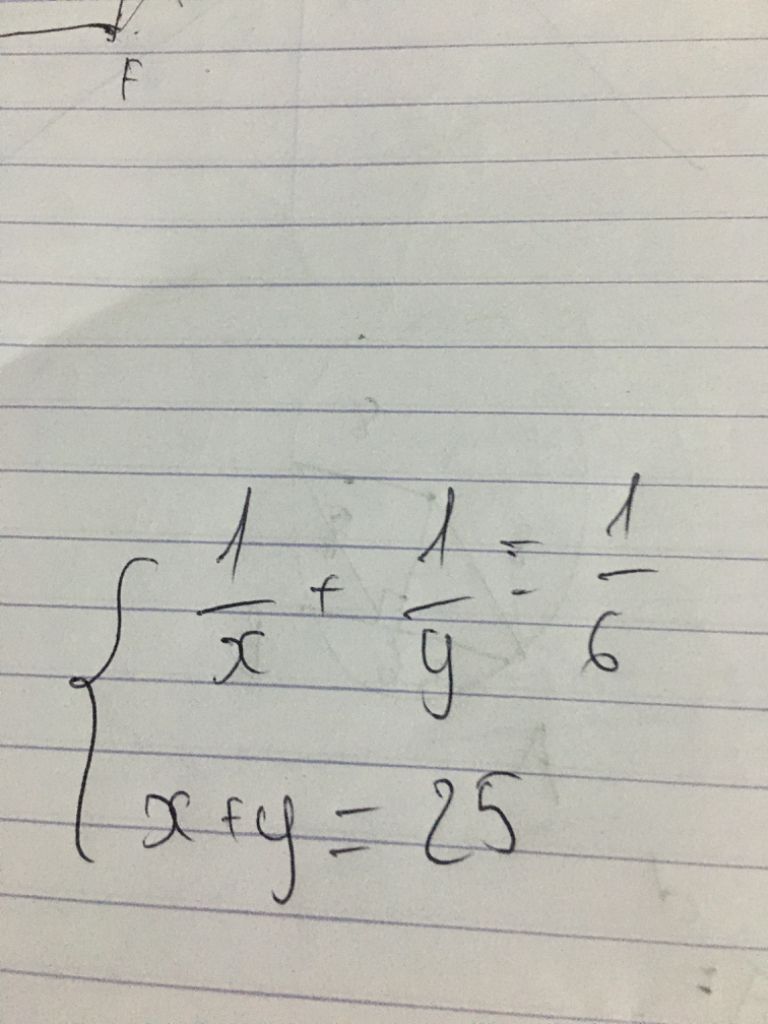 F
1/x + 1/y = 1/6
x + y = 25